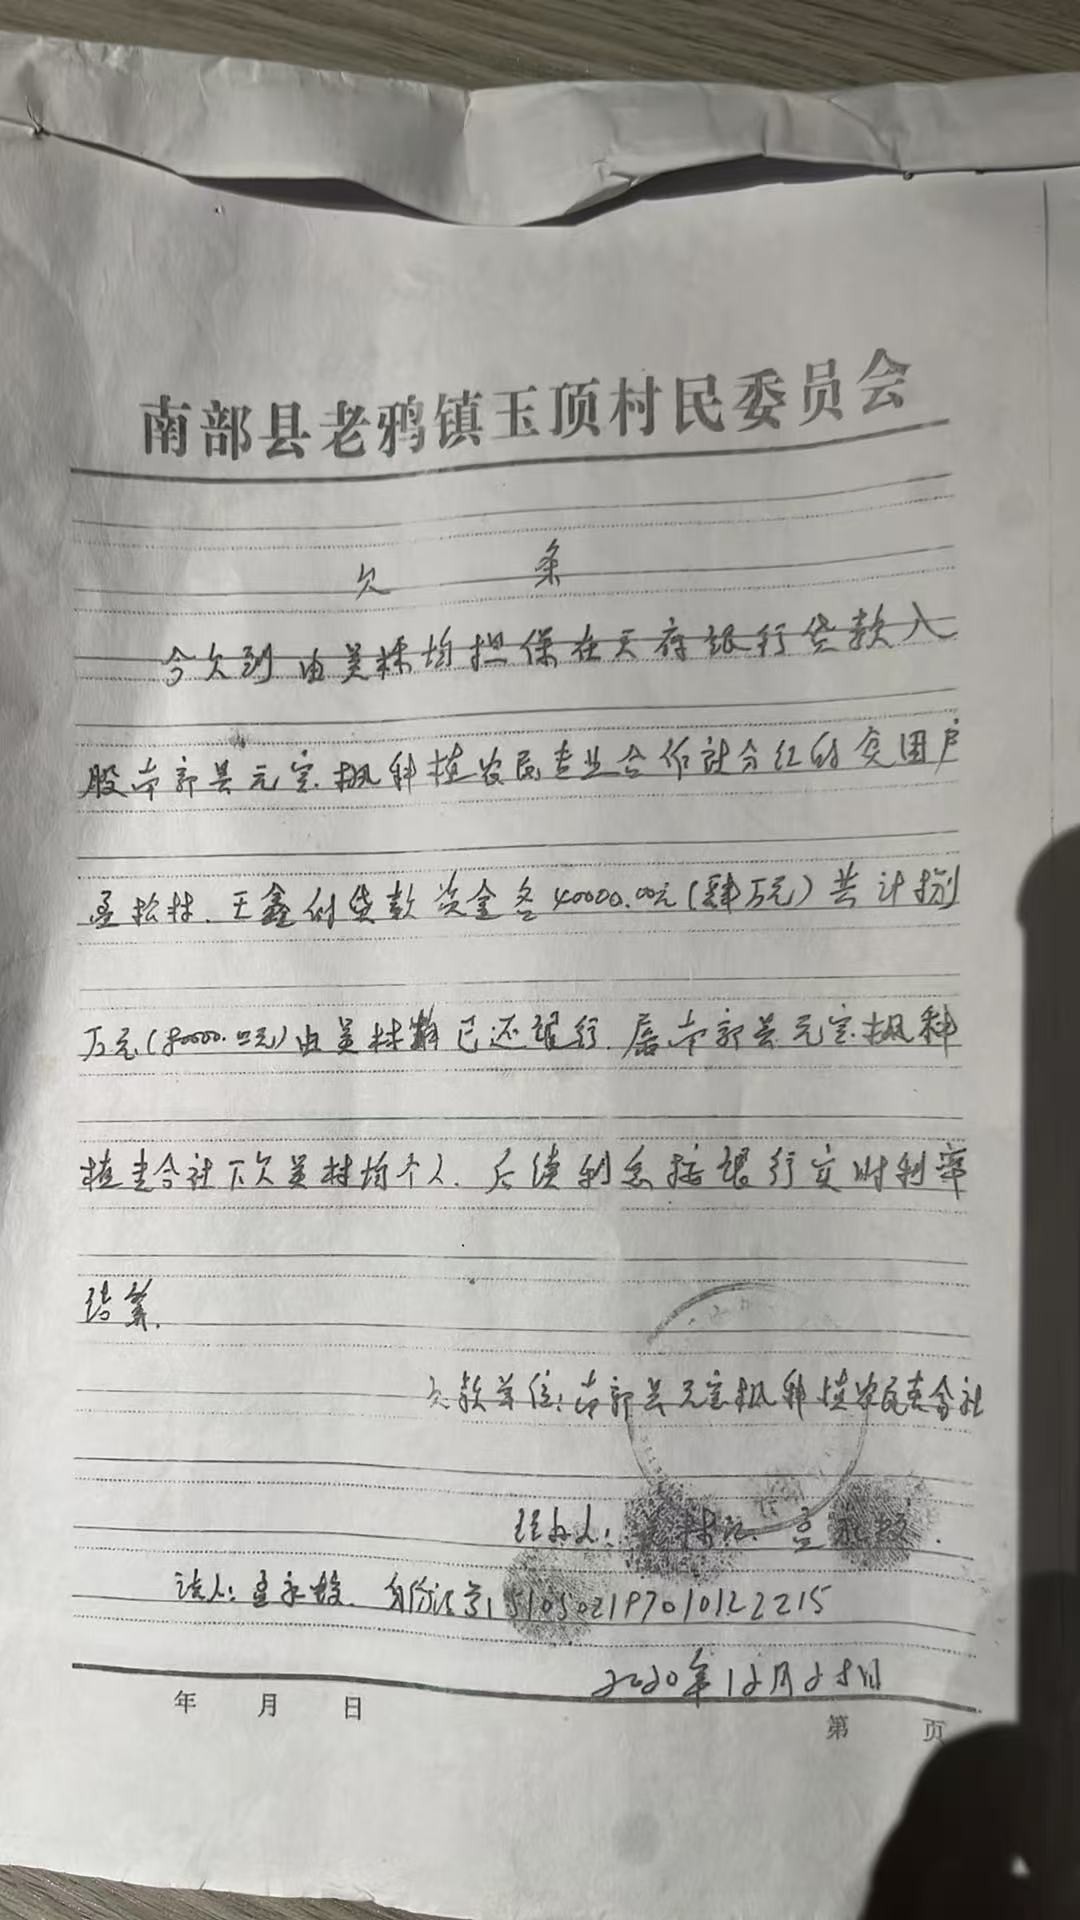 南部县老鸦镇玉顶村民委员会
欠 条
今欠到由吴林均担保在天府银行贷款入
股南部县元宝枫种植农民专业合作社分红的贫困户
孟松林、王鑫的贷款资金各40000.00元(肆万元)共计捌
万元(80000.00元)由吴林均已还银行.属南部县元宝枫种
植专合社下欠吴林均个人.后续利息按银行实时利率
结算.
欠款单位:南部县元宝枫种植农民专合社
经办人: 孟
法人:孟 身份证号:510502197010122215
2020年12月28日
年 月 日
第 页